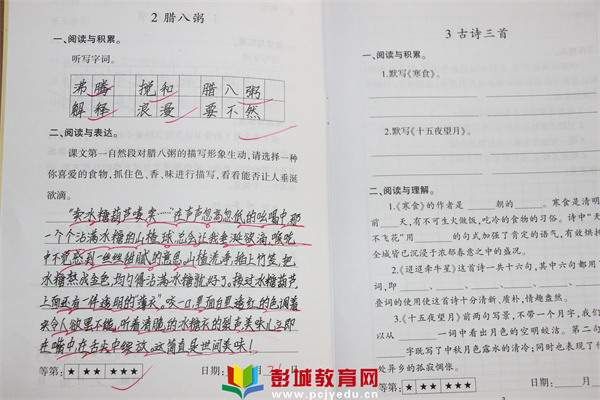 2 腊八粥
一、阅读与积累。
听写字词。
沸腾 搅和 腊八粥
解释 浪漫 要不然
二、阅读与表达。
课文第一自然段对腊八粥的描写形象生动,请选择一种
你喜爱的食物,抓住色、香、味进行描写,看看能否让人垂涎
欲滴。
"卖冰糖葫芦喽……"在声声忽高忽低的吆喝中,那
一个个沾满冰糖的山楂球总会让我垂涎欲滴,喉咙
中不觉感到一丝丝甜腻的意思。山楂洗净,插上竹签,把
冰糖熬成金色,均匀得沾满冰糖就好了。接对冰糖葫芦
上面还有一件透明的"薄衣",咬一口,里面白里透红的色调着
实令人欲罢不能,听着清脆的冰糖衣的裂声美味儿立即
在嘴中在舌尖中绽放,这简直是世间美味!
等第: ★ ★★ ★★★
月26日
3 古诗三首
一、阅读与积累。
1.默写《寒食》。
2.默写《十五夜望月》。
二、阅读与理解。
1.《寒食》的作者是 朝的 。寒食是清明
前 天,有不可生火做饭,吃冷的食物的习俗。诗中"天
不飞花"用 的句式加强了肯定的语气,有效烘托
全城皆已沉浸于浓郁春意之中的盛况。
2.《迢迢牵牛星》这首诗一共十六句,其中六句都用了
词,即 、 、 、 、
叠词的使用使这首诗十分清新、质朴,情趣盎然。
3.《十五夜望月》前两句写景,不带一个月字,我们
以从 一词中看出月色的空明皎洁。第二句
字既写了中秋月色露水的清冷;同时也表现了
处异乡的孤寂惆怅。
等第: ★ ★★ ★★★ 日期: 月
彭城教育网
www.pcjyedu.cn